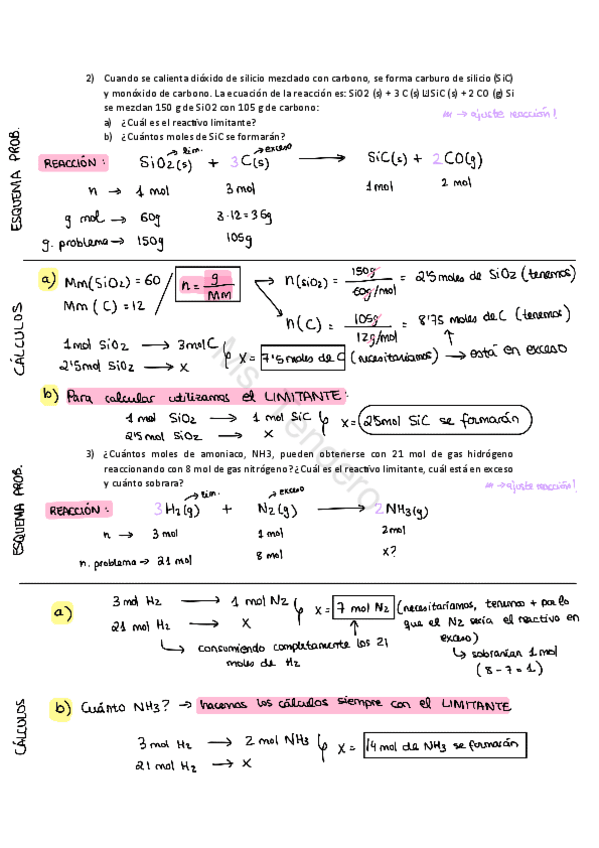 2) Cuando se calienta dióxido de silicio mezclado con carbono, se forma carburo de silicio (SiC)
y monóxido de carbono. La ecuación de la reacción es: SiO2 (s) + 3 C (s) SiC (s) + 2 CO (g) Si
se mezclan 150 g de SiO2 con 105 g de carbono:
→ ajuste reacción!
a) ¿Cuál es el reactivo limitante?
b) ¿Cuántos moles de SiC se formarán?
ESQUEMA PROB.
→ lim. → exceso
REACCIÓN: SiO2(s) + 3C(s) → SiC(s) + 2CO(g)
n → 1 mol 3 mol 1 mol 2 mol
g mol → 60g 3·12 = 36g
g. problema → 150g 105g
CÁLCULOS
a) Mm(SiO2) = 60 / n = g/Mm → n(SiO2) = 150g / 60g/mol = 2'5 moles de SiO2 (tenemos)
Mm (C) = 12 → n(C) = 105g / 12g/mol = 8'75 moles de C (tenemos)
1 mol SiO2 → 3 mol C
2'5 mol SiO2 → x x = 7'5 moles de C (necesitaríamos) → está en exceso
b) Para calcular utilizamos el LIMITANTE:
1 mol SiO2 → 1 mol SiC
2'5 mol SiO2 → x x = 2'5 mol SiC se formarán
3) ¿Cuántos moles de amoniaco, NH3, pueden obtenerse con 21 mol de gas hidrógeno
reaccionando con 8 mol de gas nitrógeno? ¿Cuál es el reactivo limitante, cuál está en exceso
y cuánto sobrara?
→ ajuste reacción!
ESQUEMA PROB.
→ lim. → exceso
REACCIÓN: 3H2(g) + N2(g) → 2NH3(g)
n → 3 mol 1 mol 2 mol
n. problema → 21 mol 8 mol x?
a) 3 mol H2 → 1 mol N2
21 mol H2 → x x = 7 mol N2 (necesitaríamos, tenemos + por lo
que el N2 sería el reactivo en
exceso)
↳ consumiendo completamente los 21
moles de H2
↳ sobrarían 1 mol
(8 - 7 = 1)
CÁLCULOS
b) Cuánto NH3? → hacemos los cálculos siempre con el LIMITANTE
3 mol H2 → 2 mol NH3
21 mol H2 → x x = 14 mol de NH3 se formarán
Ms. Tendero